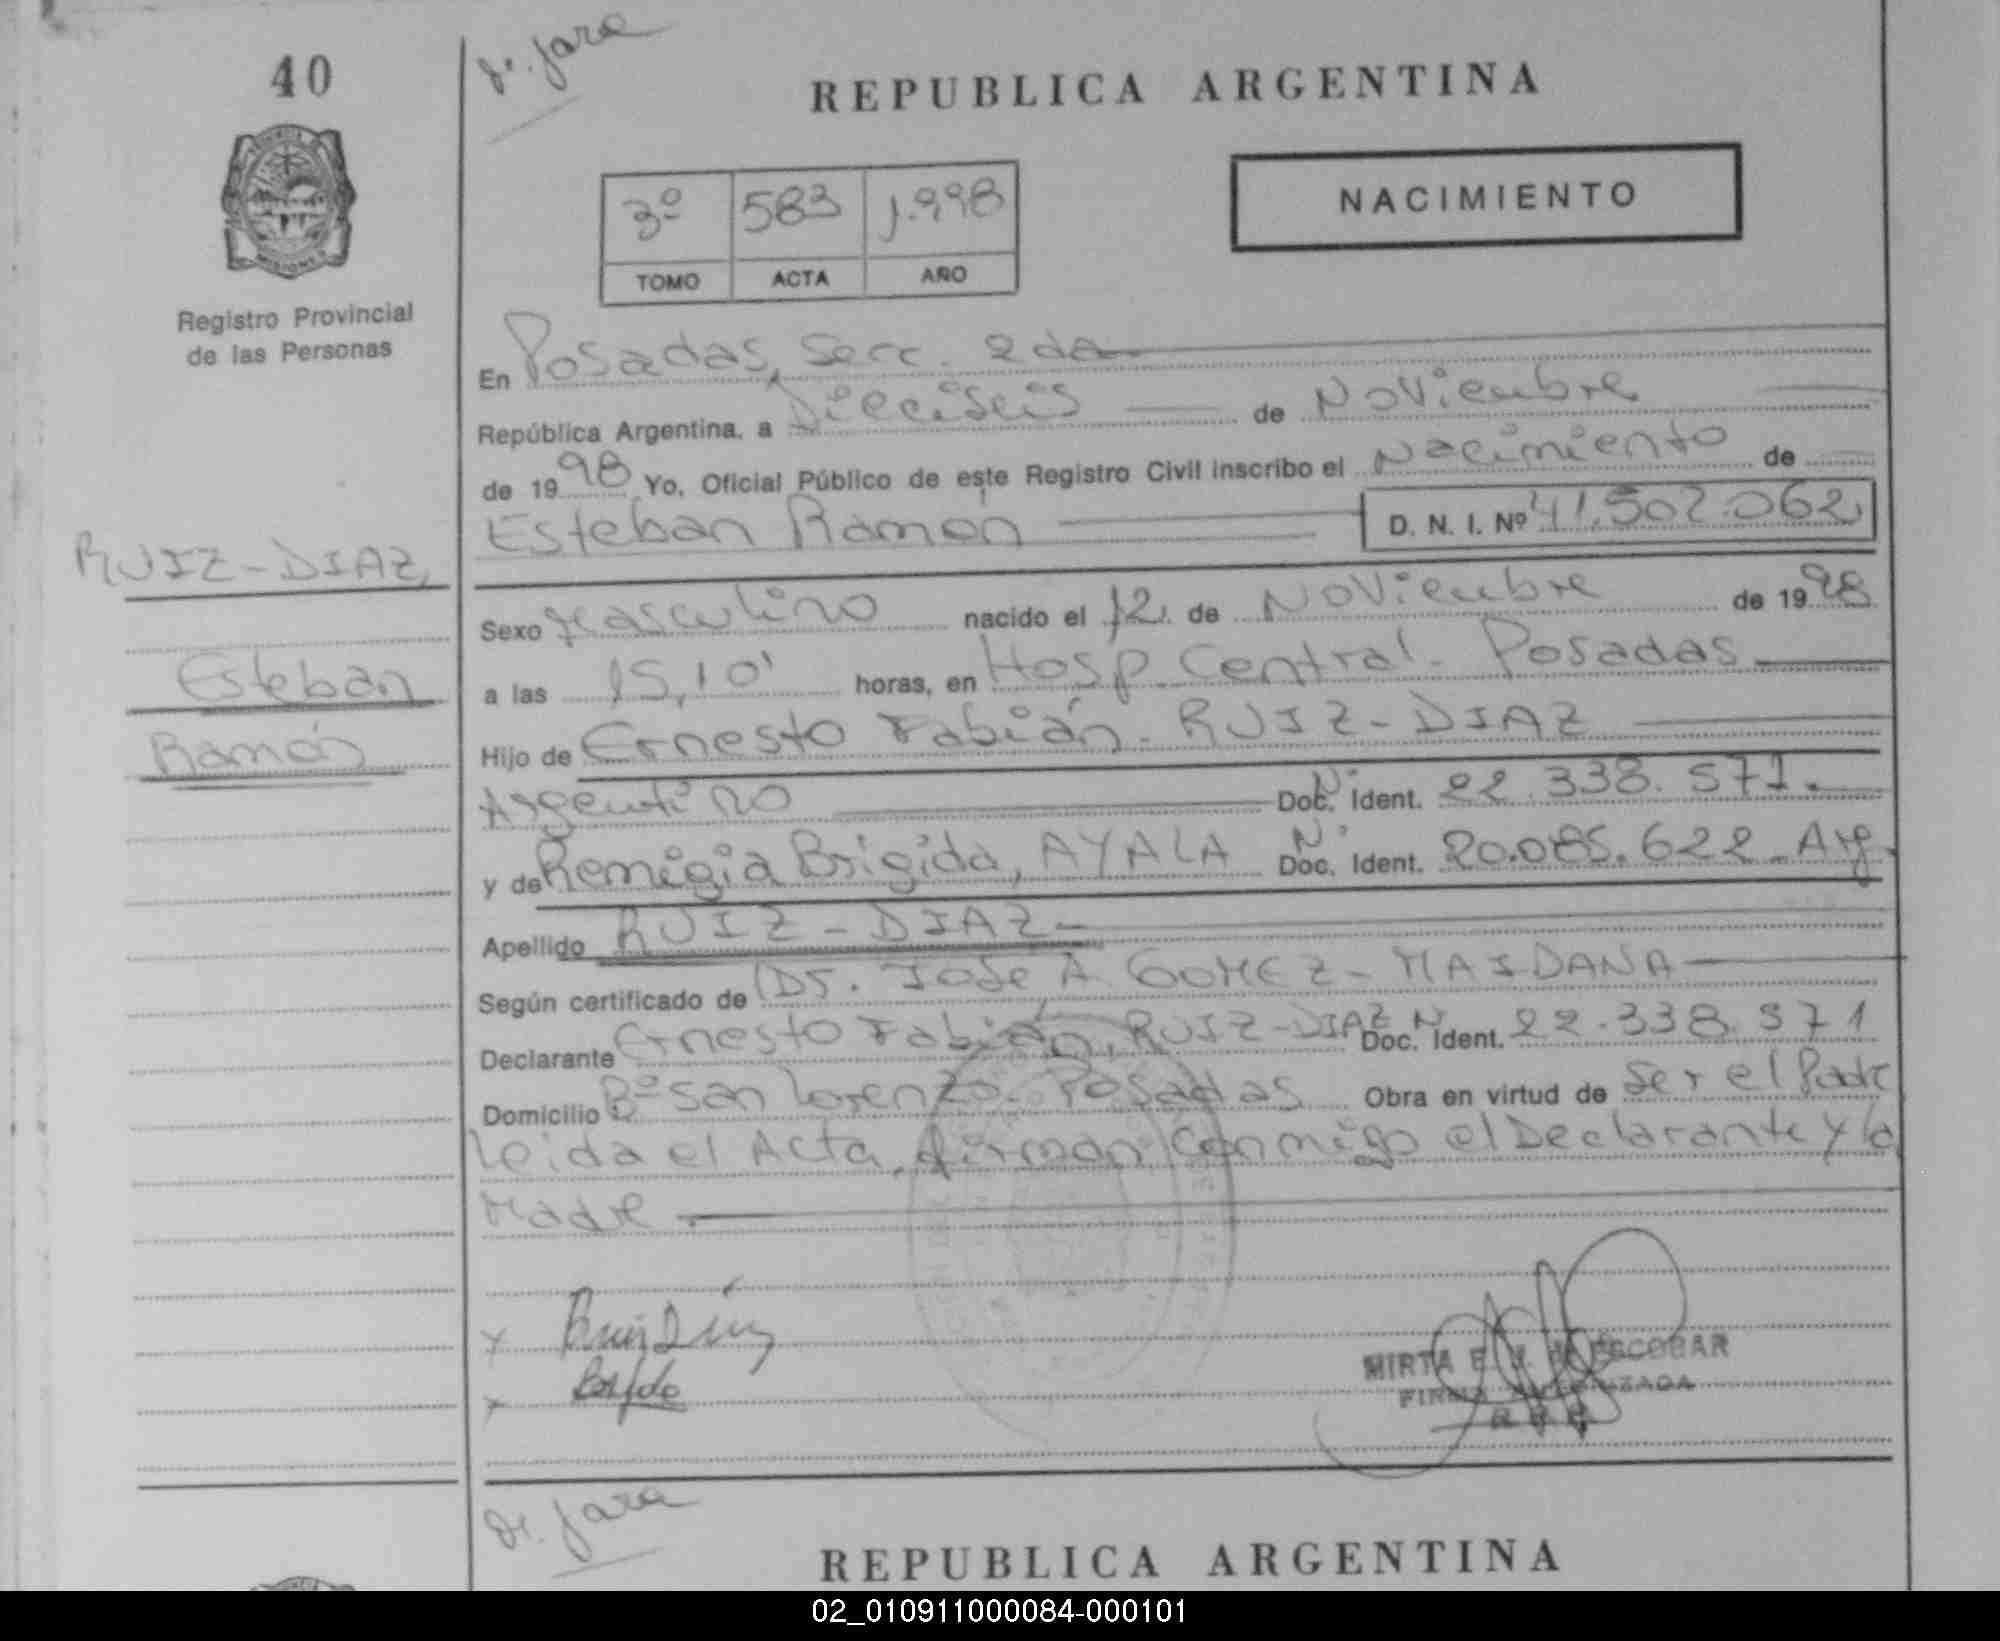 40
Dr. Jara
REPUBLICA ARGENTINA
NACIMIENTO
3º 583 1.998
TOMO ACTA AÑO
Registro Provincial
de las Personas
En Posadas, Secc. 2da
República Argentina, a Dieciseis de Noviembre
de 1998 Yo, Oficial Público de este Registro Civil inscribo el Nacimiento de
Esteban Ramón D. N. I. Nº 41.502.062
RUIZ-DIAZ,
Esteban
Ramón
Sexo Masculino nacido el 12 de Noviembre de 1998
a las 15,10' horas, en Hosp. Central - Posadas
Hijo de Ernesto Fabián - RUIZ-DIAZ
Argentino Doc. Nº Ident. 22.338.571.
y de Remigia Brigida, AYALA Doc. Nº Ident. 20.085.622 Arg.
Apellido RUIZ-DIAZ-
Según certificado de Dr. Jose A GOMEZ-MAIDANA
Declarante Ernesto Fabián, RUIZ-DIAZ Doc. N Ident. 22.338.571
Domicilio Bº San Lorenzo - Posadas Obra en virtud de Ser el Padre
Leida el Acta, firman conmigo el Declarante y la
Madre
x Ruiz Diaz
x
MIRTA E. ESCOBAR
FIRMA AUTORIZADA
Dr. Jara
REPUBLICA ARGENTINA
02_010911000084-000101